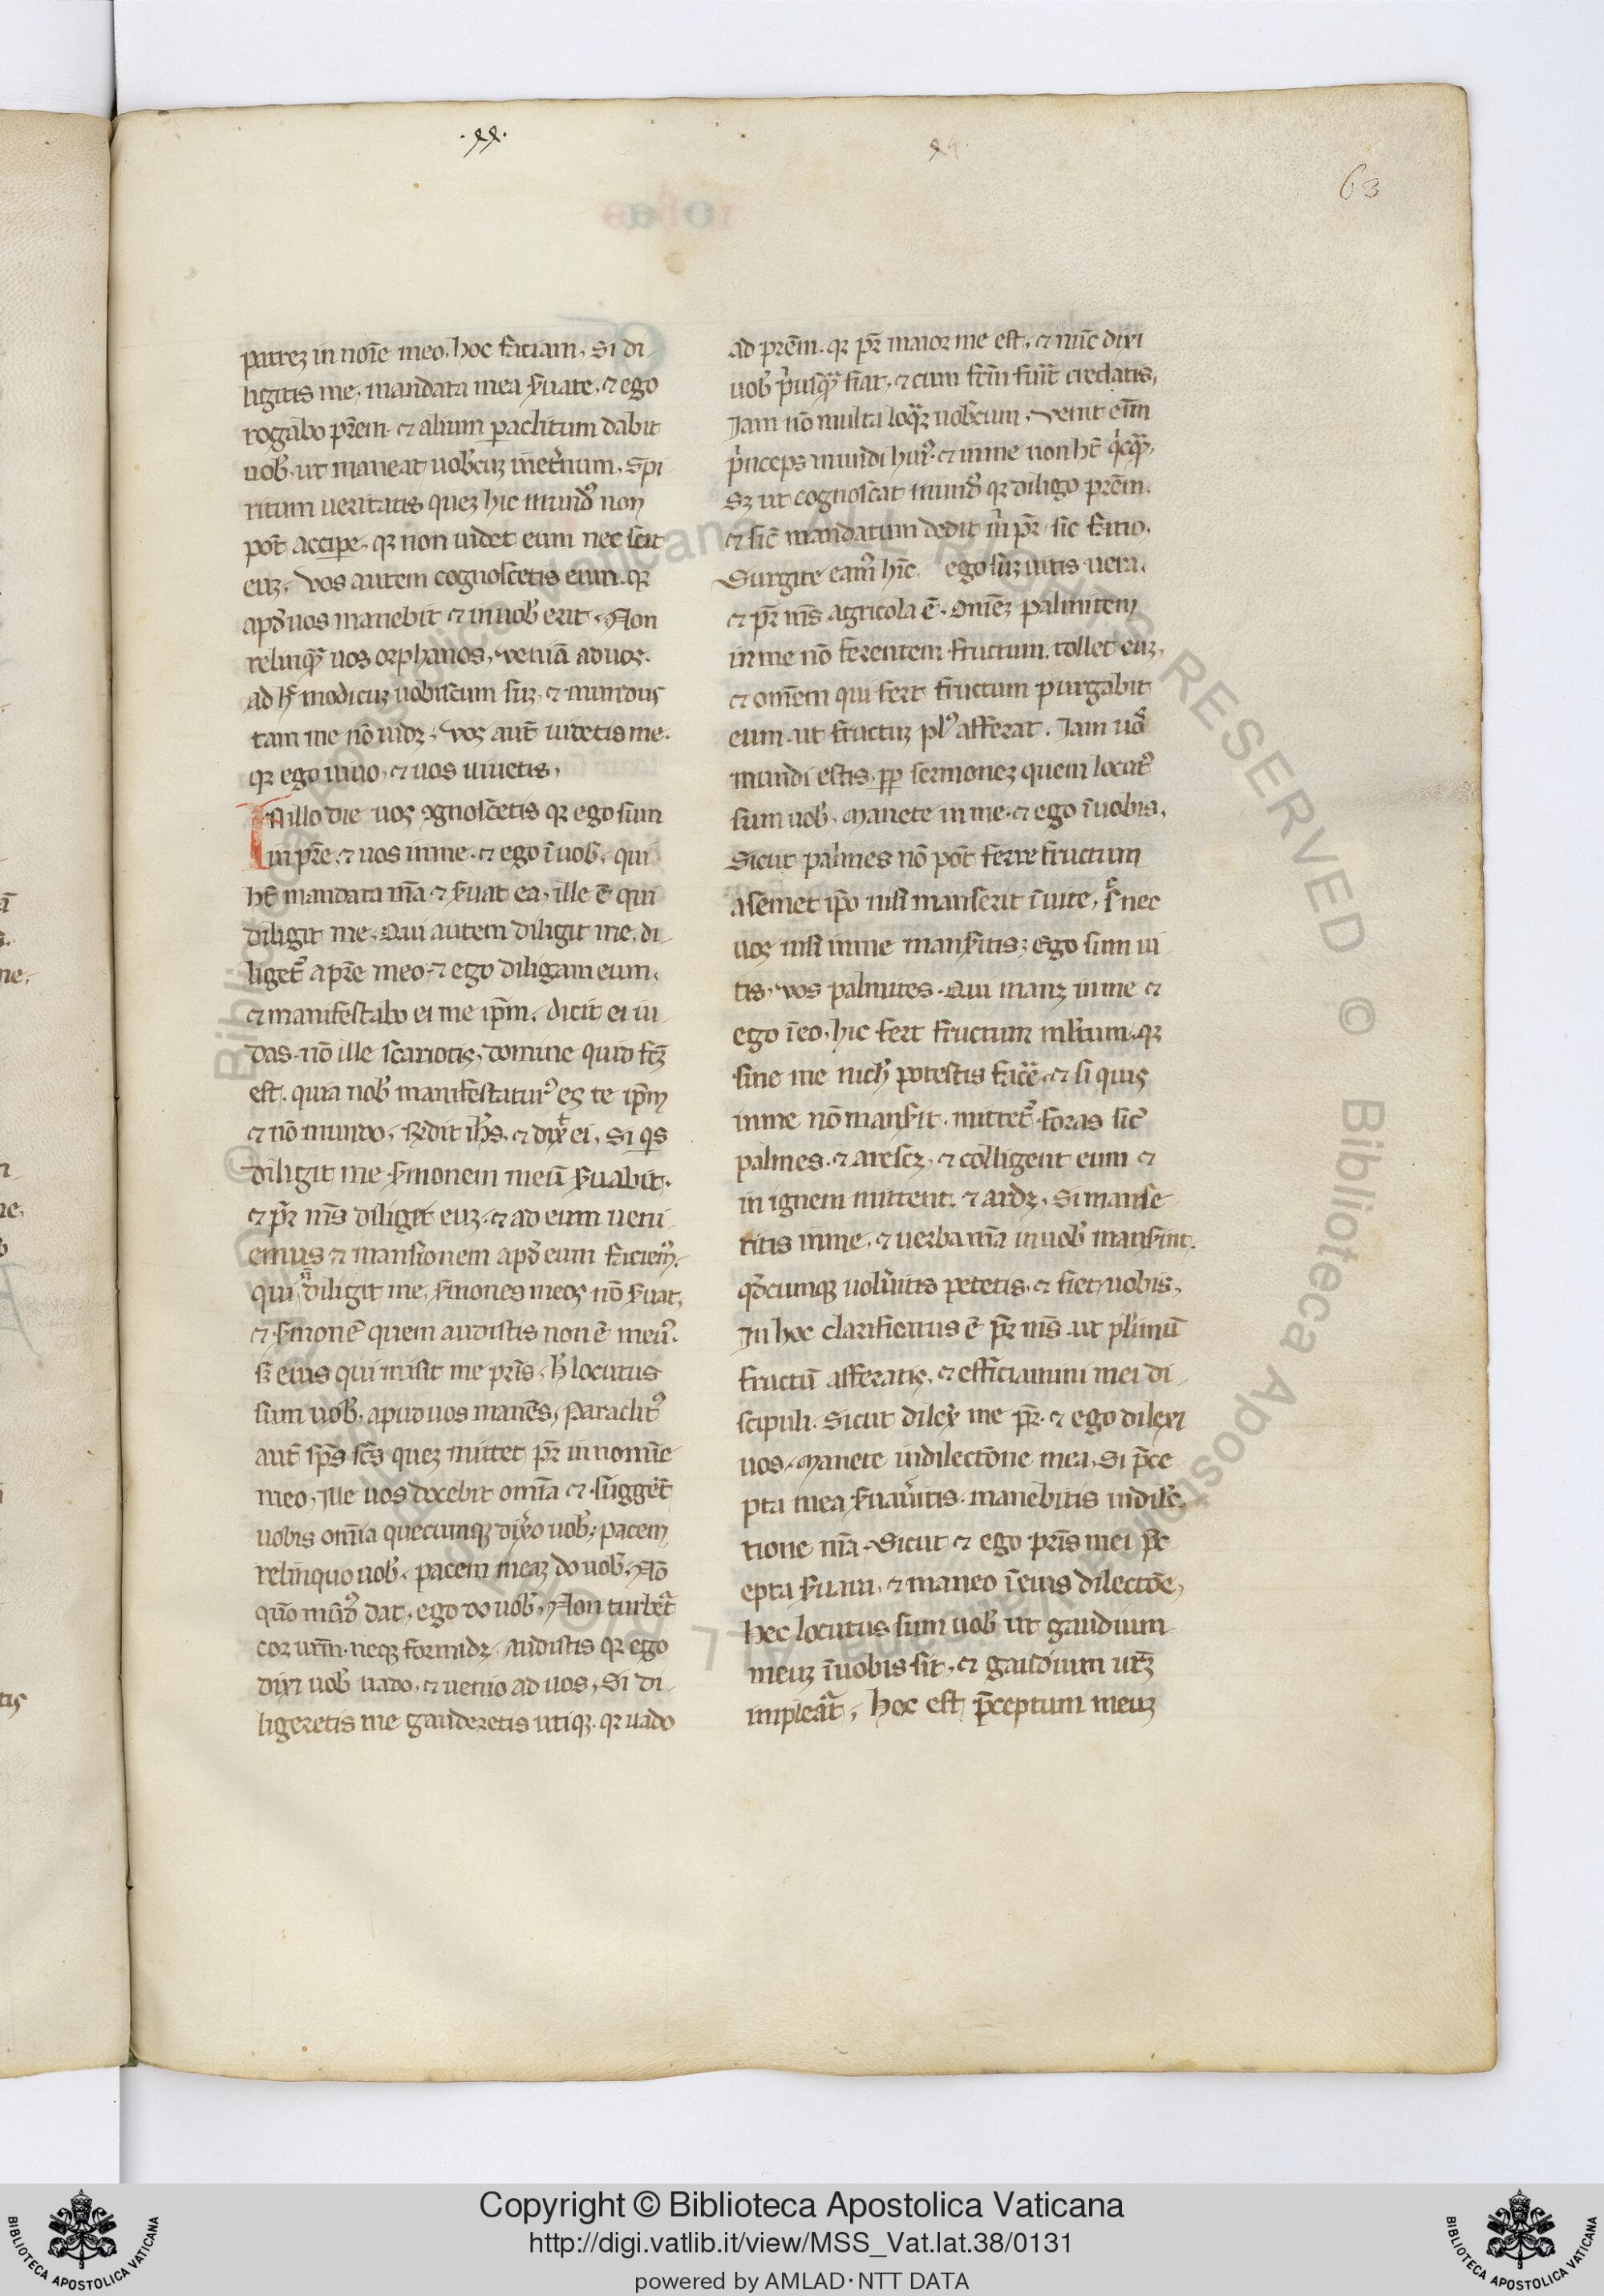 .xx.
63
patrez in noīe meo. hoc faciam. Si di-
ligitis me, mandata mea ẜuate. ⁊ ego
rogabo prēm. ⁊ alium paclitum dabit
uob̾. ut maneat uob̾cuz inet̾num. Spi
ritum ueritatis quez hic mund̾ non
pōt accipe. qꝛ non uidet eum nec scit
euz. Vos autem cognoscetis eum. qꝛ
apđ uos manebit ⁊ in uob̾ erit. Non
relinqᷓ uos orphanos. ueniā ad uos.
ad h̾ modicuz uobiscum suz. ⁊ mundus
iam me nō uidꝫ. Vos aut̄ uidetis me.
qꝛ ego uiuo. ⁊ uos uiuetis.
IN illo die uos ꝯgnoscetis qꝛ ego sum
in pr̄e. ⁊ uos in me. ⁊ ego ī uob̾. qui
ht̄ mandata m̄a ⁊ ẜuat ea. ille ē qui
diligit me. Qui autem diligit me. di-
liget᷑ a pr̄e meo. ⁊ ego diligam eum.
⁊ manifestabo ei me ip̄m. dicit ei iu-
das. nō ille scariotis. domine quid fc̄ꝫ
est. quia nob̾ manifestatur᷒ es te ip̄m
⁊ nō mundo. Rn̄dit ih̄s. ⁊ dix̾t ei. Si qs
diligit me ẜmonem meū ẜuabit.
⁊ pr̄ m̄s diliget euz. ⁊ ad eum ueni-
emus ⁊ mansionem apđ eum faciem᷒.
qui n̄ diligit me, ẜmones meos nō ẜuat.
⁊ ẜmonē quem audistis non ē meu᷒.
sꝫ eius qui misit me pr̄is. h̾ locutus
sum uob̾. apud uos manēs. Paraclit᷒
aut̄ sp̄s sc̄s quez mittet pr̄ in nomīe
meo. Ille uos docebit om̄ia ⁊ sugget̄
uobis om̄ia quecumqꝫ dix̾o uob̾. pacem
relinquo uob̾. pacem meaz do uob̾. Nō
quō mūd᷒ dat. ego do uob̾. Non turbet᷑
cor ur̄m. neqꝫ formidꝫ. Audistis qꝛ ego
dixi uob̾ uado. ⁊ uenio ad uos. Si di-
ligeretis me gauderetis utiqꝫ. qꝛ uado
ad prēm. qꝛ pr̄ maior me est. ⁊ nūc dixi
uob̾ p̾usqᷓ fiat. ⁊ cum fc̄m fuīt credatis.
Jam nō multa loqᷓꝛ uob̾cum. Venit eīm
p̾nceps mundi hui᷒. ⁊ in me non ht̄ q̾cqᷓ.
Sꝫ ut cognoscat mund᷒ qꝛ diligo prēm.
⁊ sic̄ mandatum dedit m̾ pr̄. sic facio.
Surgite eam᷒ hīc. ego suz uitis uera.
⁊ pr̄ m̄s agricola ē. Omēz palmitem
in me nō ferentem fructum. tollet euz.
⁊ omēm qui fert fructum purgabit
eum. ut fructuz pl᷒ afferat. Iam uos
mundi estis. pp̄ sermonez quem locut᷒
sum uob̾. Manete in me. ⁊ ego ī uobis.
Sicut palmes nō pōt ferre fructum
a semet ip̄o nisi manserit ī uite, sͥ nec
uos nisi in me manẜitis. Ego sum ui
tis. uos palmites. Qui manꝫ in me ⁊
ego ī eo. hic fert fructum ml̾tum. qꝛ
sine me nich̾ potestis facē. ⁊ si quis
in me nō manẜit. mittet᷑ foras sic̄
palmes. ⁊ arescꝫ. ⁊ colligent eum ⁊
in ignem mittent. ⁊ ardꝫ. Si manse
ritis in me. ⁊ uerba m̄a in uob̾ manẜint.
qđcumqꝫ uolu̾itis petetis. ⁊ fiet uobis.
In hoc clarificatus ē pr̄ m̄s. ut pl̾imū
fructū afferatis. ⁊ efficiamini mei di-
scipuli. Sicut dilex̾ me pr̄. ⁊ ego dilexi
uos. Manete in dilectōne mea. Si p̄ce
pta mea ẜuau̾itis. manebitis in dilec-
tione m̄a. Sicut ⁊ ego pr̄is mei p̄c
epta ẜuaui. ⁊ maneo ī eius dilectōe.
hec locutus sum uob̾ ut gaudium
meuz ī uobis sit. ⁊ gaudium ur̄ꝫ
impleat᷑. hoc est p̄ceptum meuz
© Biblioteca Apostolica Vaticana. ALL RIGHTS RESERVED
Copyright © Biblioteca Apostolica Vaticana
http://digi.vatlib.it/view/MSS_Vat.lat.38/0131
powered by AMLAD·NTT DATA
BIBLIOTECA APOSTOLICA VATICANA
BIBLIOTECA APOSTOLICA VATICANA